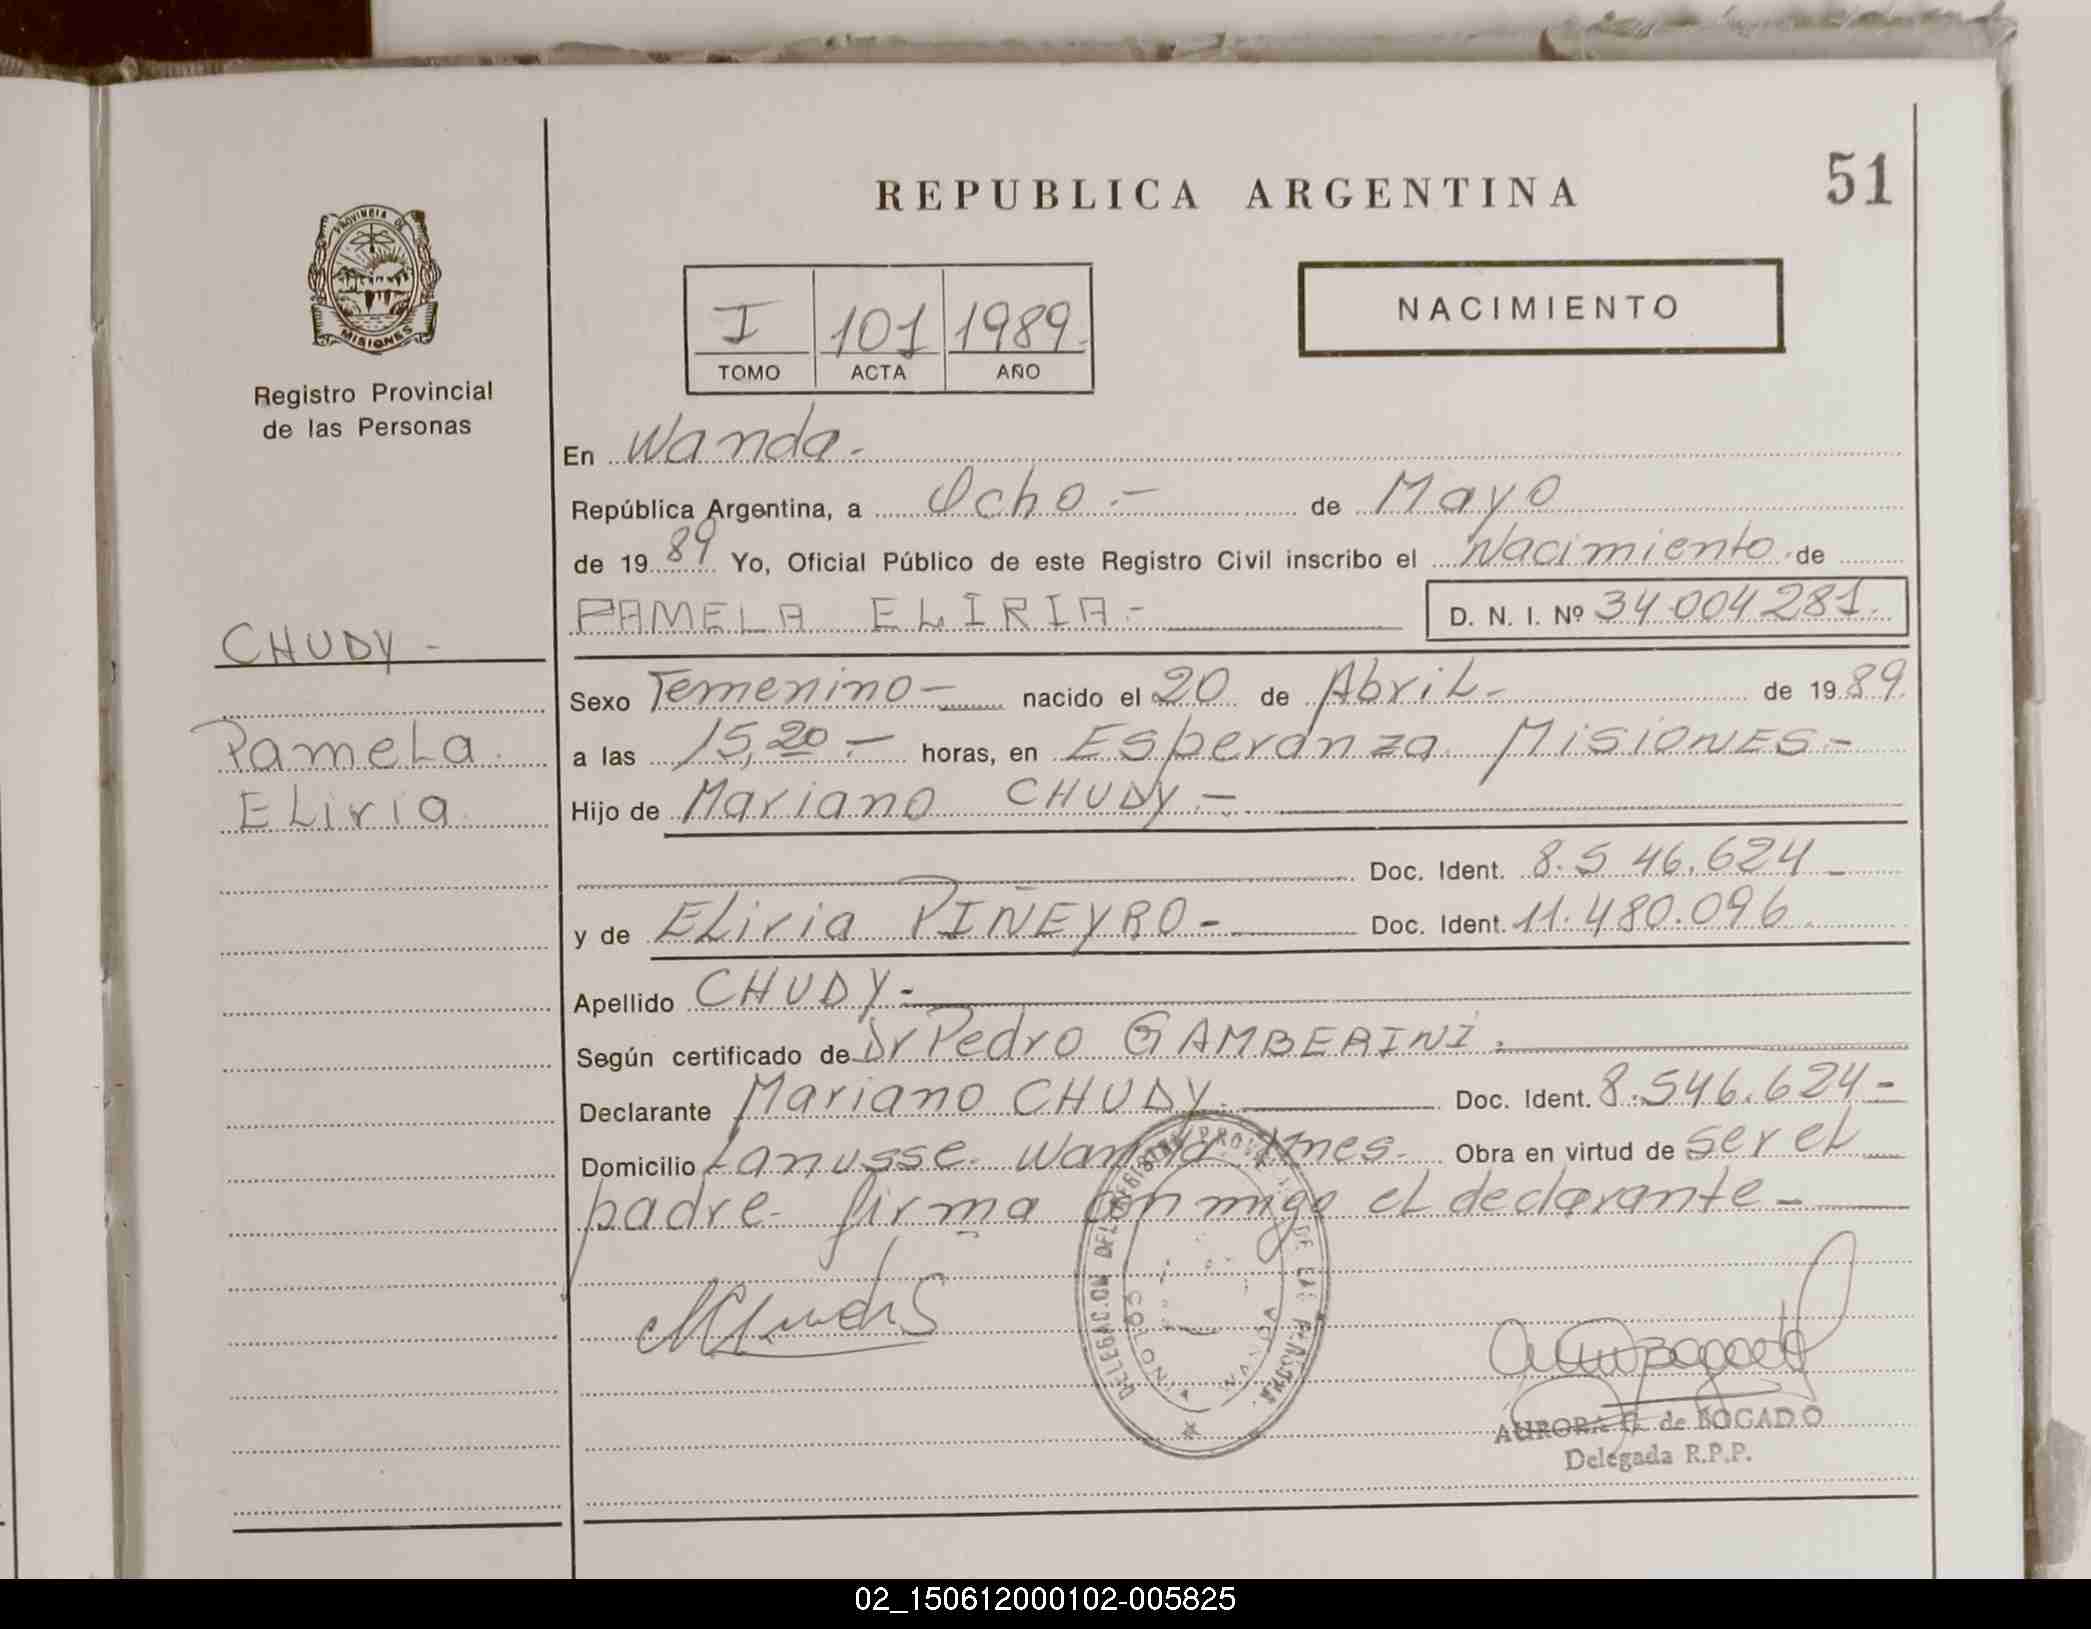 REPUBLICA ARGENTINA
51
PROVINCIA DE
MISIONES
Registro Provincial
de las Personas
I 101 1989.
TOMO ACTA AÑO
NACIMIENTO
En Wanda.-
República Argentina, a Ocho.- de Mayo
de 1989 Yo, Oficial Público de este Registro Civil inscribo el Nacimiento de
PAMELA ELIRIA.- D. N. I. Nº 34.004.281.
CHUDY-
Pamela.
Eliria.
Sexo Femenino- nacido el 20 de Abril- de 1989.
a las 15,20.- horas, en Esperanza Misiones-
Hijo de Mariano CHUDY.-
Doc. Ident. 8.546.624-
y de Eliria PIÑEYRO- Doc. Ident. 11.480.096.
Apellido CHUDY-
Según certificado de Dr Pedro GAMBERINI.
Declarante Mariano CHUDY. Doc. Ident. 8.546.624-
Domicilio Lanusse. Wanda Mnes. Obra en virtud de ser el
padre- firma conmigo el declarante-
DELEGACION DEL REGISTRO PROVINCIAL DE LAS PERSONAS
WANDA
AURORA G. de BOGADO
Delegada R.P.P.
02_150612000102-005825